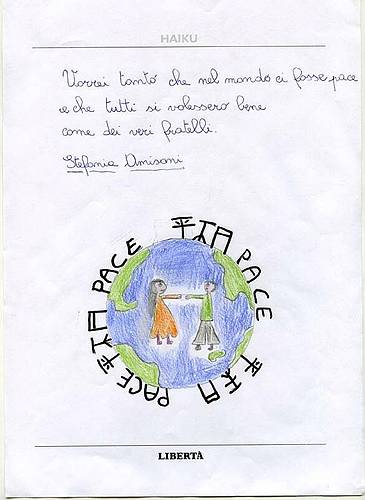 HAIKU
Vorrei tanto che nel mondo ci fosse pace
e che tutti si volessero bene
come dei veri fratelli.
Stefania Amisani
PACE
PACE
PACE
LIBERTÀ